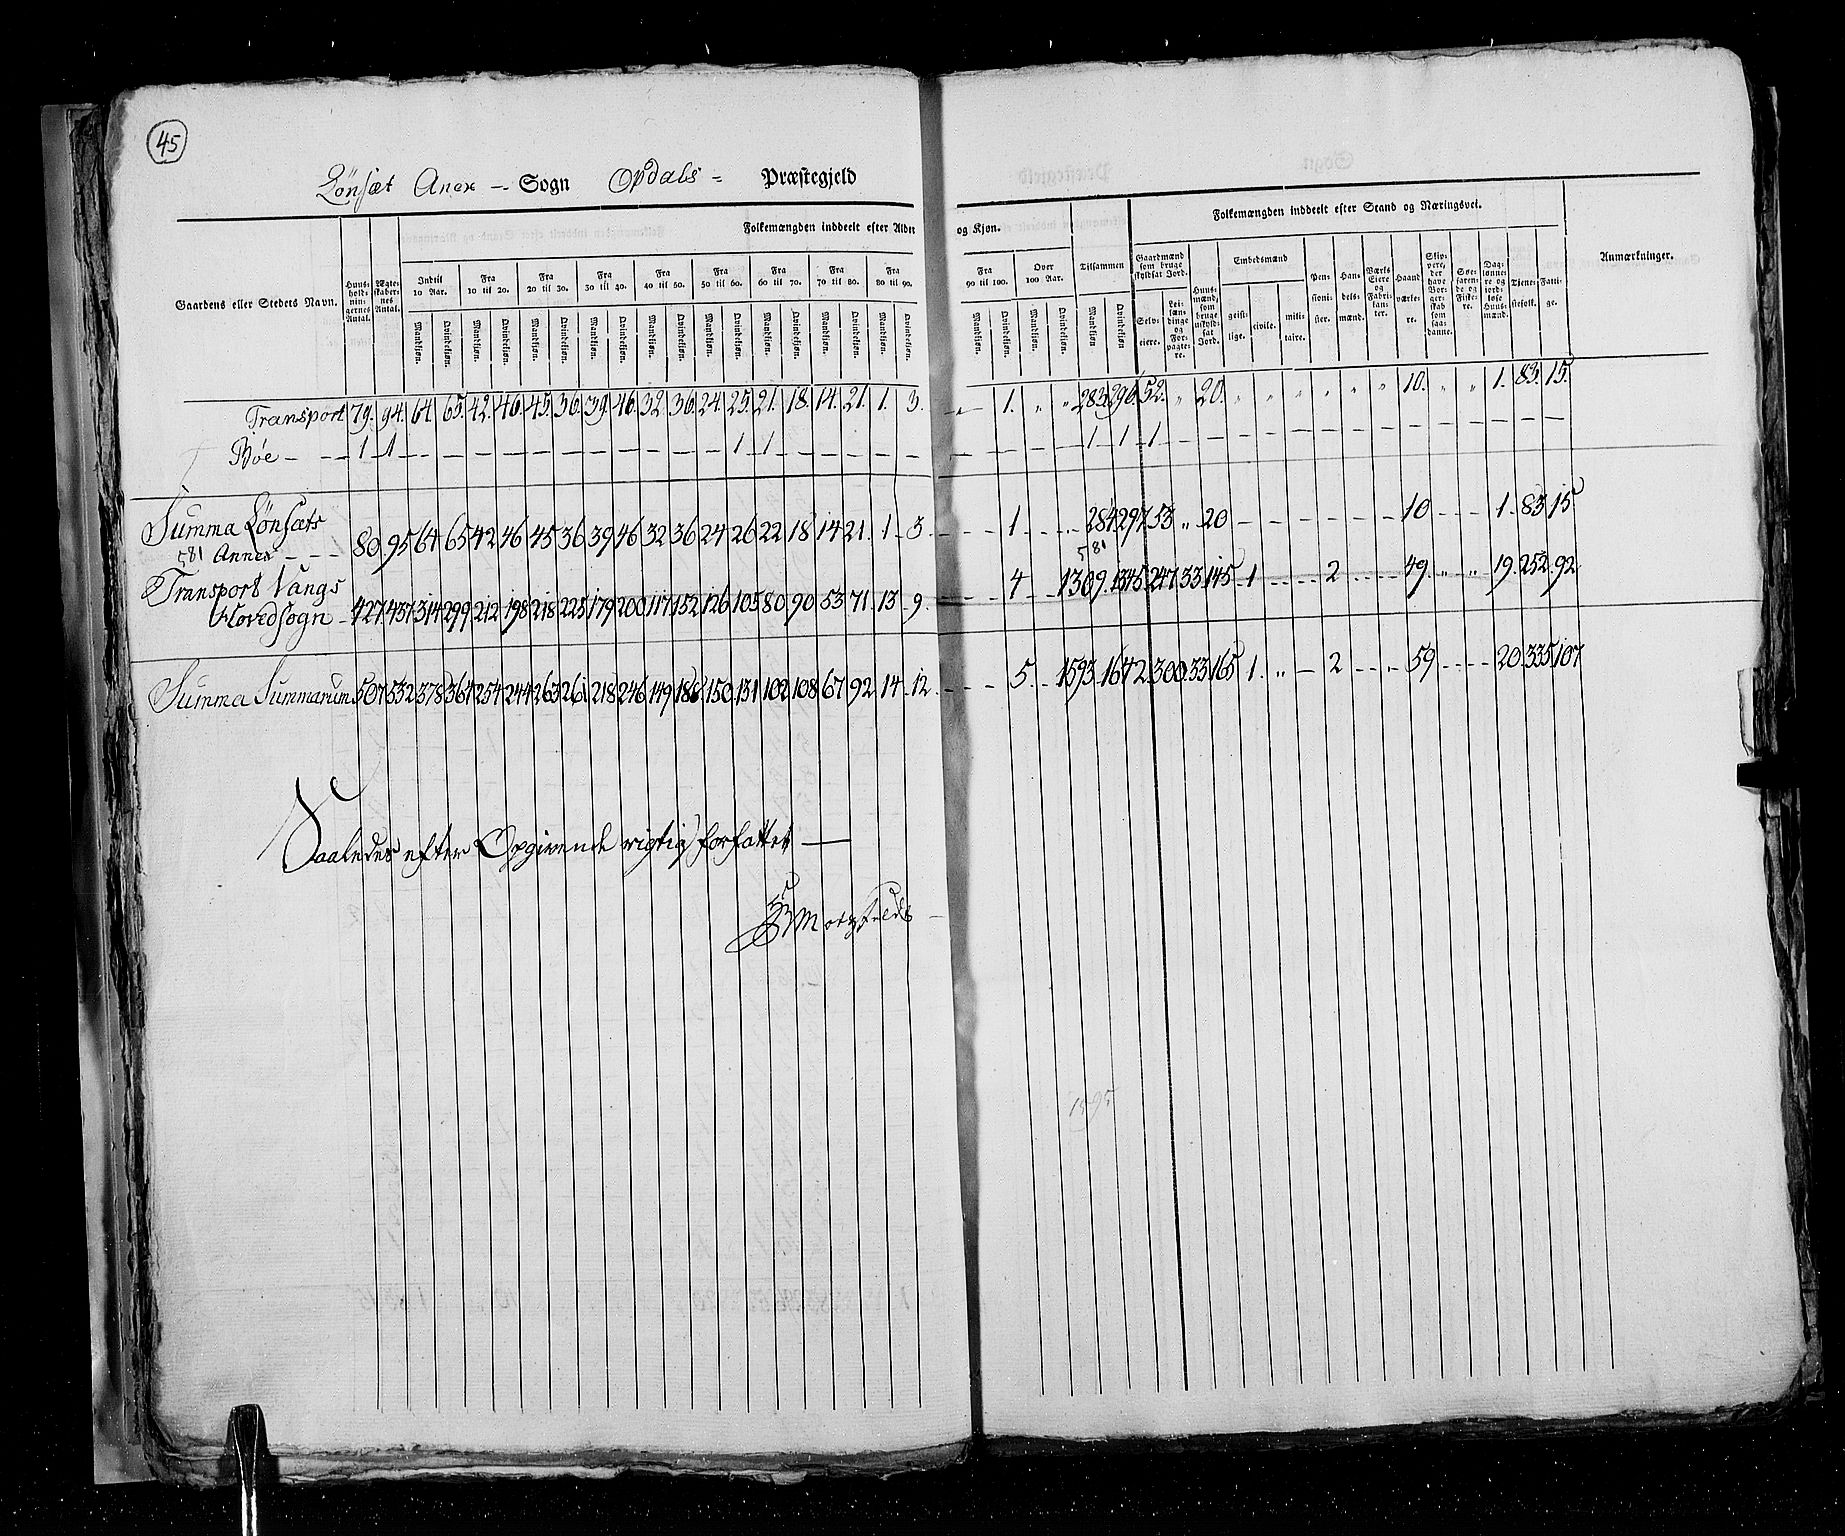 45
Lønsæt Anex - Sogn Opdals - Præstegjeld
Folkemængden inddeelt efter Alder og Kjøn. Folkemængden inddeelt efter Stand og Næringsvei.
Gaardens eller Stedets Navn. Huusholdningernes Antal. Ægteskabernes Antal. Indtil 10 Aar. Fra 10 til 20. Fra 20 til 30. Fra 30 til 40. Fra 40 til 50. Fra 50 til 60. Fra 60 til 70. Fra 70 til 80. Fra 80 til 90. Fra 90 til 100. Over 100 Aar. Tilsammen Gaardmænd som bruge skyldsat Jord. Huusmænd, som bruge uskyldsat Jord. Embedsmænd Pensionister. Handelsmænd. Værks Eiere og Fabrikanter. Haandværkere. Skippere, der have Borgerskab som saadanne. Søefarende og Fiskere. Daglønnere og jordløse Huusmænd. Tjenestefolk. Fattige. Anmærkninger.
Mandkjøn. Qvindekjøn. Mandkjøn. Qvindekjøn. Mandkjøn. Qvindekjøn. Mandkjøn. Qvindekjøn. Mandkjøn. Qvindekjøn. Mandkjøn. Qvindekjøn. Mandkjøn. Qvindekjøn. Mandkjøn. Qvindekjøn. Mandkjøn. Qvindekjøn. Mandkjøn. Qvindekjøn. Mandkjøn. Qvindekjøn. Mandkjøn Qvindekjøn Selveiere. Leilændinge og Forpagtere. geistlige. civile. militaire.
Transport 79. 94. 64. 65. 42. 46. 45. 36. 39. 46. 32. 36. 24. 25. 21. 18. 14. 21. 1. 3. „ 1. „ „ 283. 296. 52. „ 20. „ „ „ „ „ „ 10. „ „ 1. 83. 15.
Bøe - - 1 1 - - - - - - - - - - - 1 1 - - - - - - - - - 1 1 1 - - - - - - - - - - - - - -
Summa Lønsæts
581 Annex - - - 80 95 64 65 42 46 45 36 39 46 32 36 24 26 22 18 14 21 1 3 - - - 1 - - 284 297 53 „ 20 - - - - - - 10 - - 1 83 15
581
Transport Vangs
Hovedsogn - 427 437 314 299 212 198 218 225 179 200 117 152 126 105 80 90 53 71 13 9 - - - 4 - - 1309. 1345 247 33 145 1 - - 2 - - 49 „ „ 19. 252 92
Summa Summarum 507 532 378 364 254 244 263 261 218 246 149 188 150 131 102 108 67 92 14 12 - - - 5. - - 1593. 1642. 300. 33 165 1. „ - 2 - - 59 - - 20. 335 107
Saaledes efter Opgivende rigtig forfattet -
1595